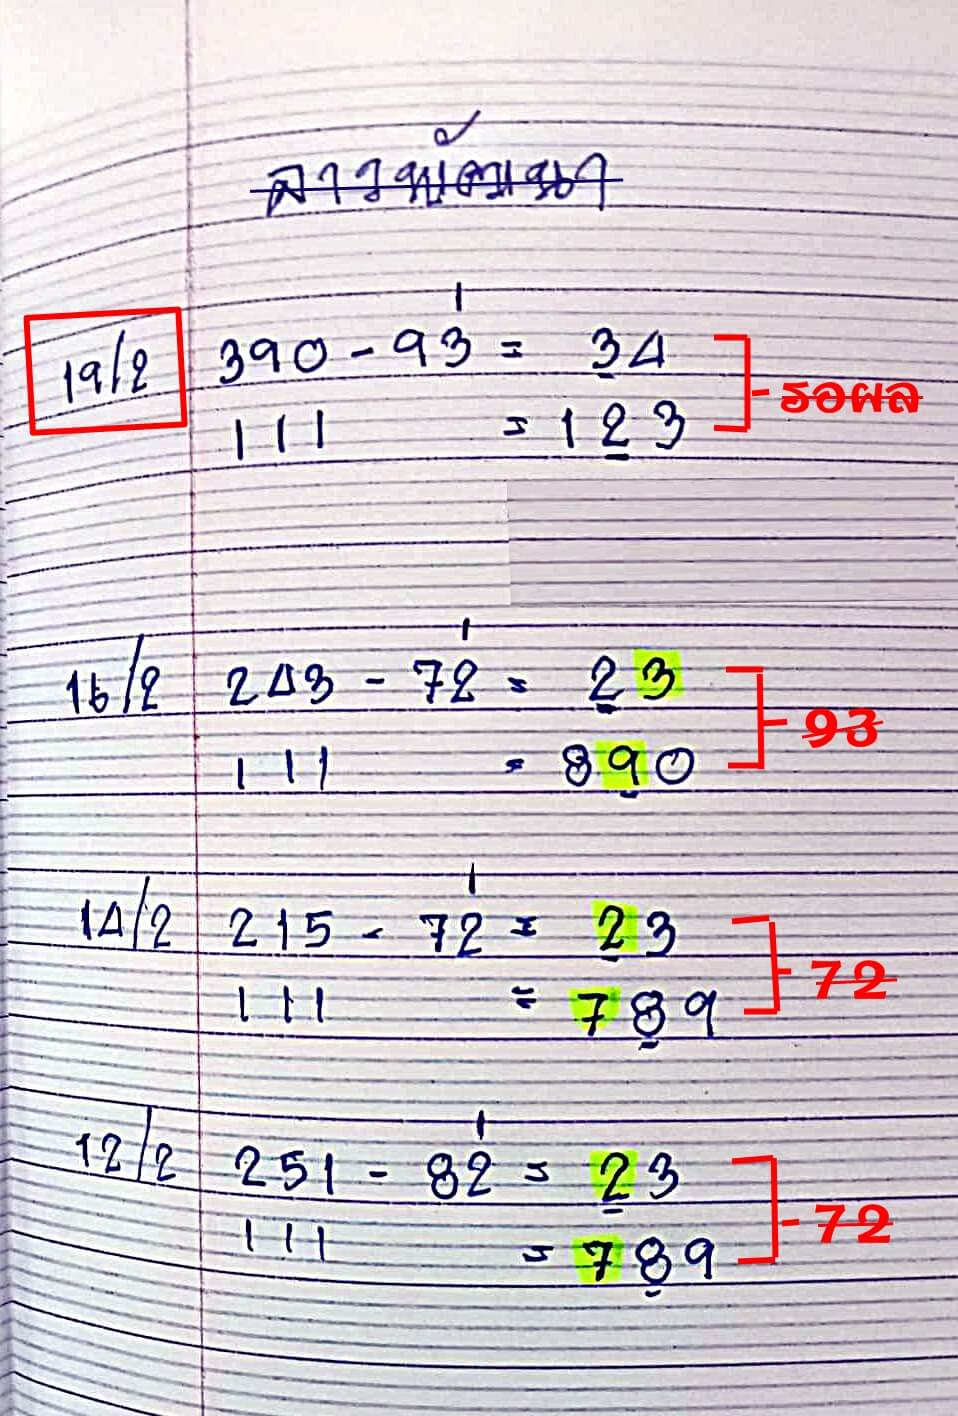 ลาวพัฒนา
19/2 390 - 93 = 34
111 = 123
รอผล
16/2 243 - 72 = 23
111 = 890
93
14/2 215 - 72 = 23
111 = 789
72
12/2 251 - 82 = 23
111 = 789
72